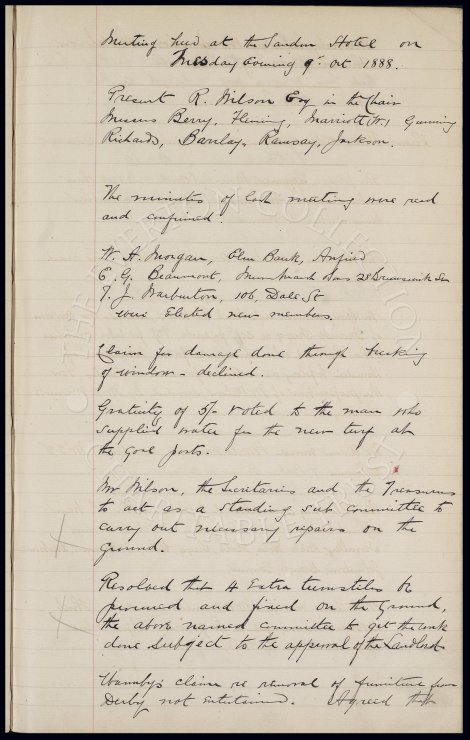 Meeting held at the Sandon Hotel on
Tuesday Evening 9th Oct 1888.
Present R. Wilson Esq in the Chair
Messrs Berry, Fleming, Marriott (W) Gunning
Richards, Barclay, Ramsay, Jackson.
The minutes of last meeting were read
and confirmed.
W. H. Morgan, Elm Bank, Anfield
E. G. Beaumont, 28 Brunswick
T. J. Warburton, 106, Dale St
were Elected new members.
Claim for damage done through breaking
of window - declined.
Gratuity of 5/- voted to the man who
supplied water for the new turf at
the Goal posts.
Mr Wilson, the Secretaries and the Treasurers
to act as a Standing sub committee to
carry out necessary repairs on the
ground.
Resolved that 4 Extra turnstiles be
procured and fixed on the Ground,
the above named committee to get the work
done subject to the approval of the Landlord
claim re removal of furniture from
Derby not entertained. Agreed that
THE COLLECTION